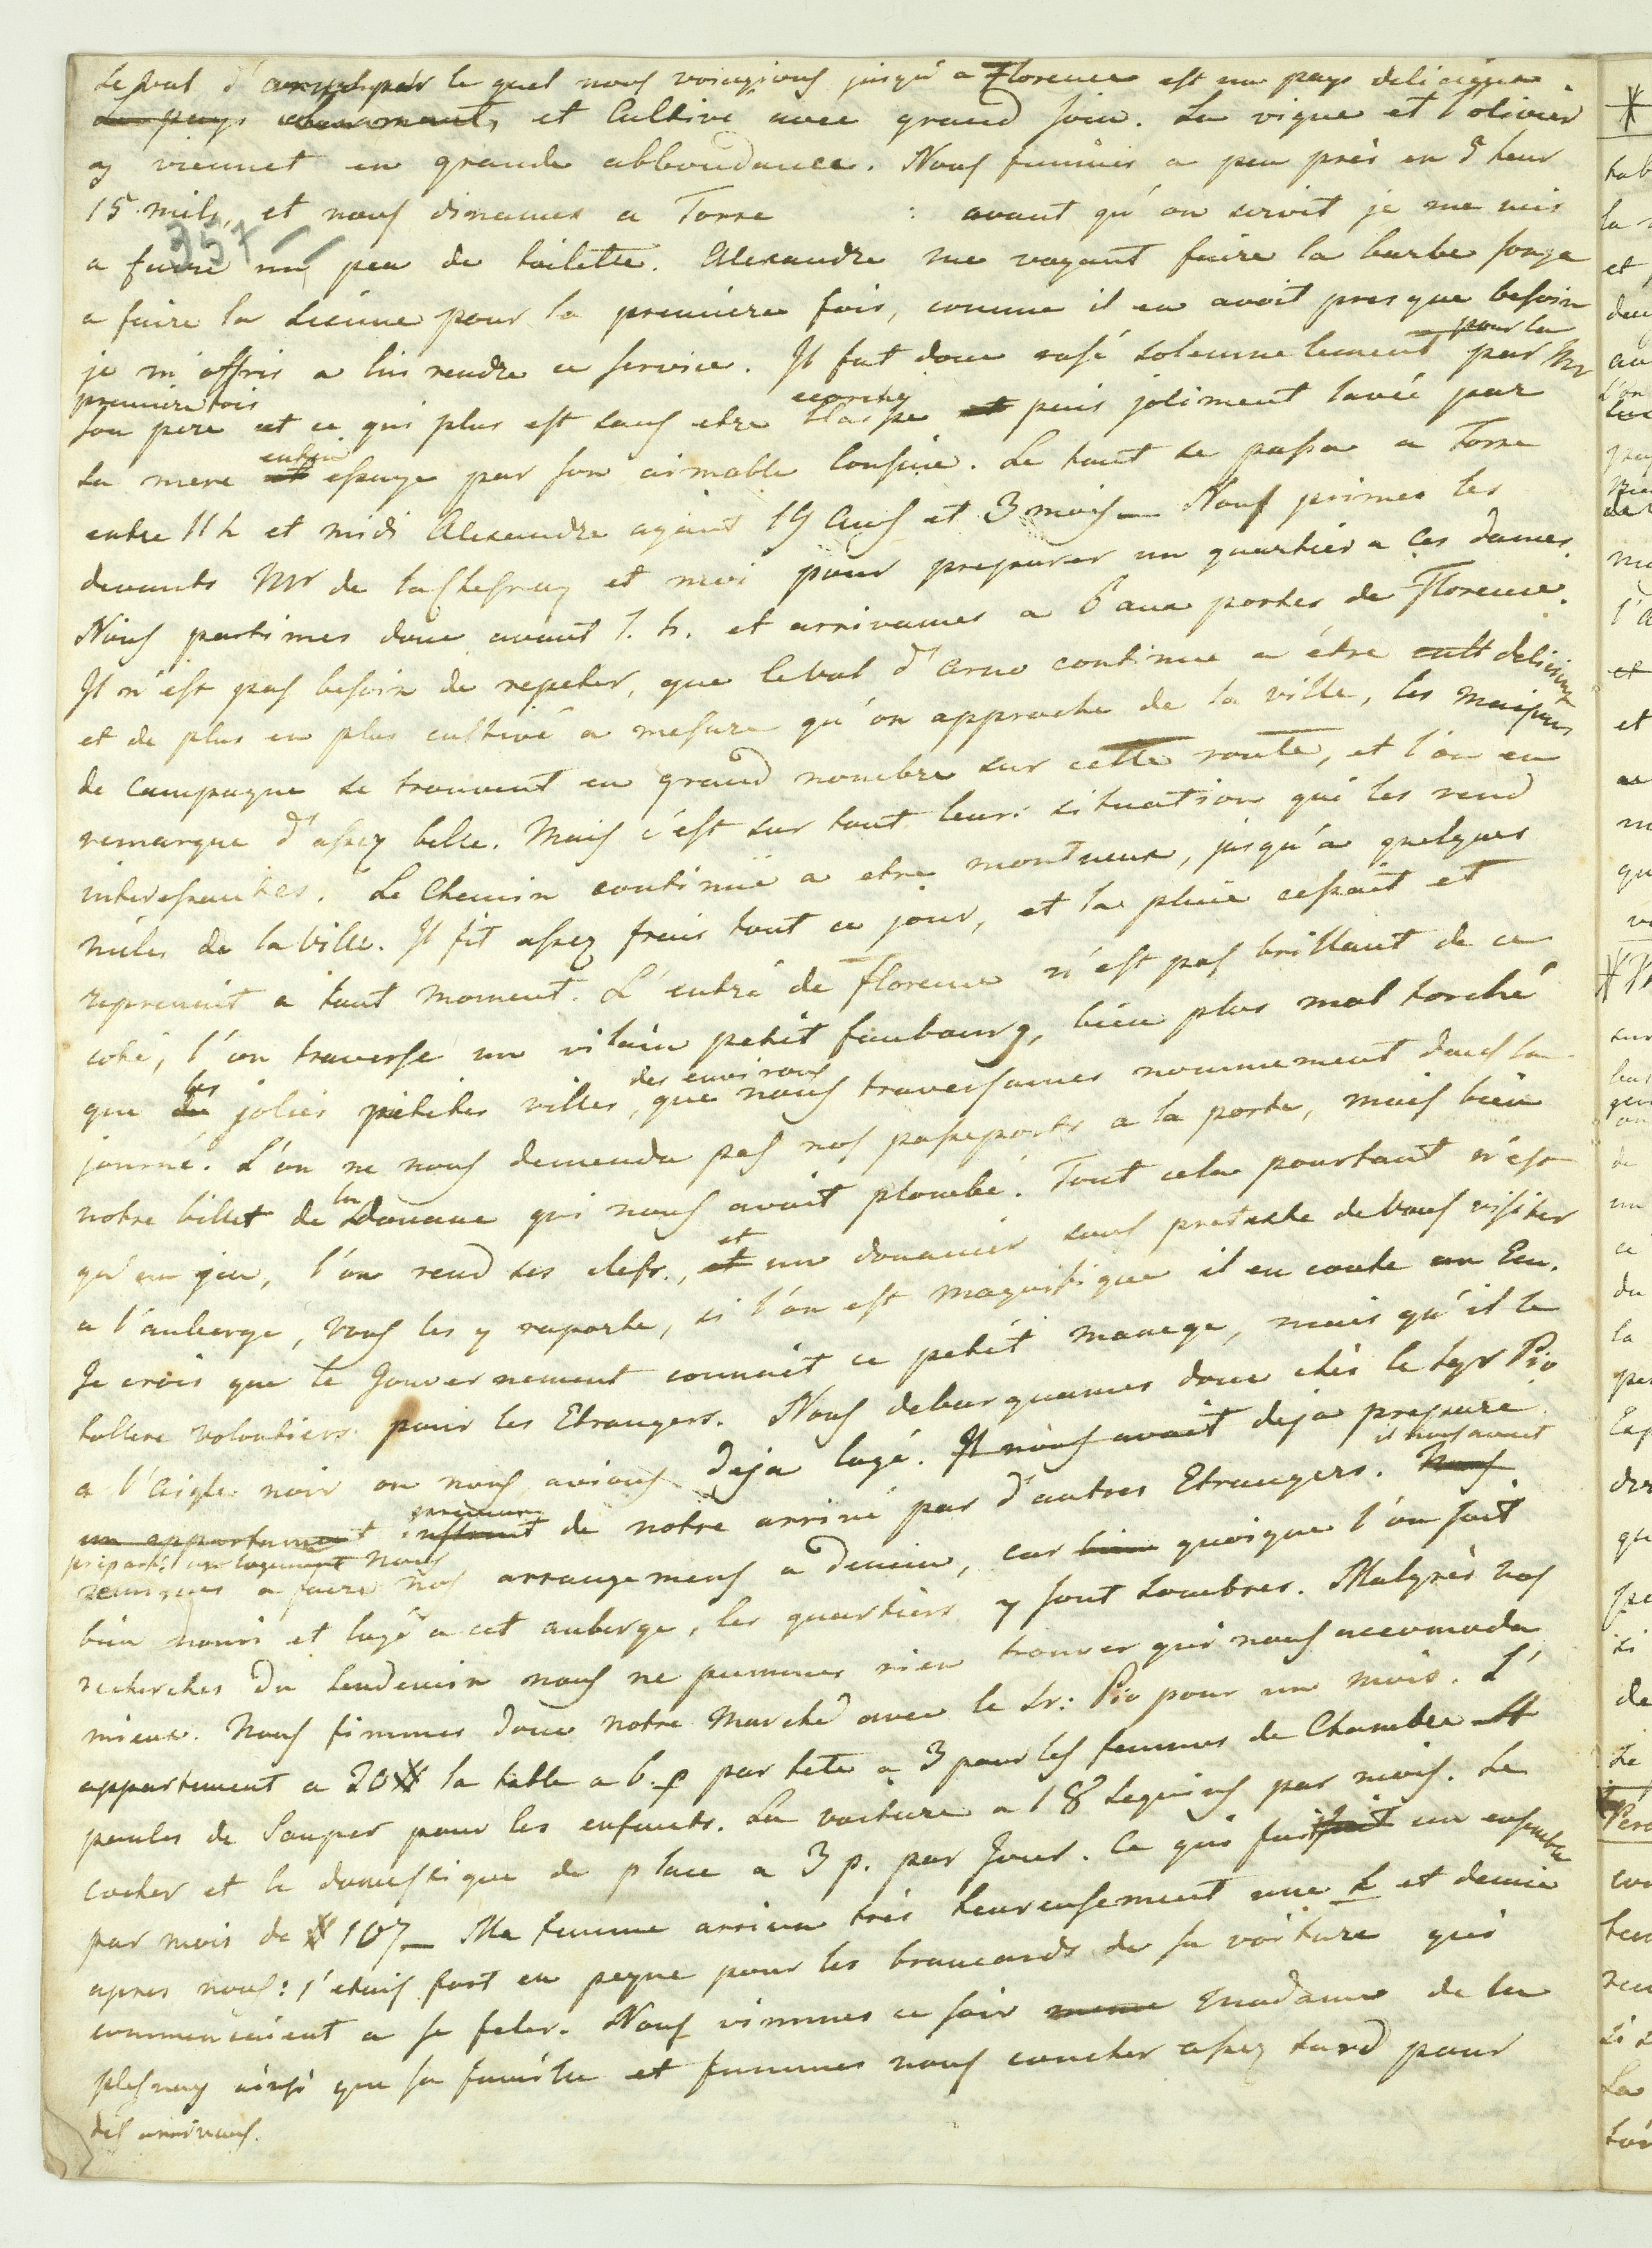 Le val d'arno par le quel nous voiagions jusqu'a Florence est un pays delicieux
et Cultivé avec grand soin. La vigne et l'olivier
y viennet en grande abboundance. Nous fumes a peu près en 3 heur
15 mils, et nous dinames a Torre : avant qu'on servit je me mis
357
a faire un peu de toilette. Alexandre me voyant faire la barbe songe
a faire la sienne pour la premiere fois, comme il en avoit presque besoin
je m'offris a lui rendre ce service. Il fut donc rasé solemnelement pour la par Mr
premiere fois ecorché
son pere et ce qui plus est sans etre et puis joliment lavée par
enfin
sa mere et essuye par son aimable Cousine. Le tout se passa a Torre
entre 11 h et midi Alexandre ayant 19 Ans et 3 mois — Nous primes les
devants Mr de et moi pour preparer un quartier a Ces dames.
Nous partimes donc avant 1. h. et arrivames a 6 aux portes de Florence.
Il n'est pas besoin de repeter, que le val d'arno continue a être delicieux
et de plus en plus cultivé a mesure qu'on approche de la ville, les maisons
de Campagne se trouvent en grand nombre sur cette route, et l'on en
remarque d'assez belle. Mais c'est sur tout leur situation qui les rend
interessantes. Le Chemin continüe a etre montueux, jusqu'a quelques
miles de la Ville. Il fit assez frais tout ce jour, et la pluie cessait et
reprenoit a tout moment. L'entré de Florence n'est pas brillant de ce
coté, l'on traverse un vilain petit faubourg, bien plus mal torché
les des environs
que de jolies petites villes, que nous traversames nommement dans la
journé. L'on ne nous demenda pas nos passeports a la porte, mais bien
la
notre billet de Douane qui nous avoit plombé. Tout cela pourtant n'est
et
qu'un jeu, l'on rend ses clefs, et un douanier sous pretexte de vous visiter
a l'auberge, vous les y raporte, si l'on est magnifique il en coute un Ecu.
Je crois que le Gouvernement connait ce petit manege, mais qu'il le
tollere volontiers pour les Etrangers. Nous debarquames donc chès le Sgr Pio
a l'aigle noir ou nous avions deja logé. Il nous avait deja preparé
il nous avait
un appartement instruit de notre arrivé par d'autres Etrangers. Nous
preparé un logement nous
remimes a faire nos arrangemens a demain, car bien quoique l'on soit
bien nouri et logé a cet auberge, les quartiers y sont sombres. Malgrès nos
recherches du lendemain nous ne pummes rien trouver qui nous accomoda
mieux. Nous fimmes donc notre Marché avec le Sr: Pio pour un mois. L'
appartement a 20 la table a 6. p par tete a 3 pour les femmes de Chambre 4
paules de Souper pour les enfants. La voiture a 18 Sequins par mois. Le
cocher et le domestique de place a 3 p. par Jour. Ce qui fait un ensemble
par mois de 107 — Ma femme arriva très heureusement une h et demie
apres nous: j'etais fort en peyne pour les brancards de sa voiture qui
commencaient a se feler. Nous vimmes ce soir Madame de la
ainsi que sa famille et fummes nous coucher assez tard pour
des arrivans.